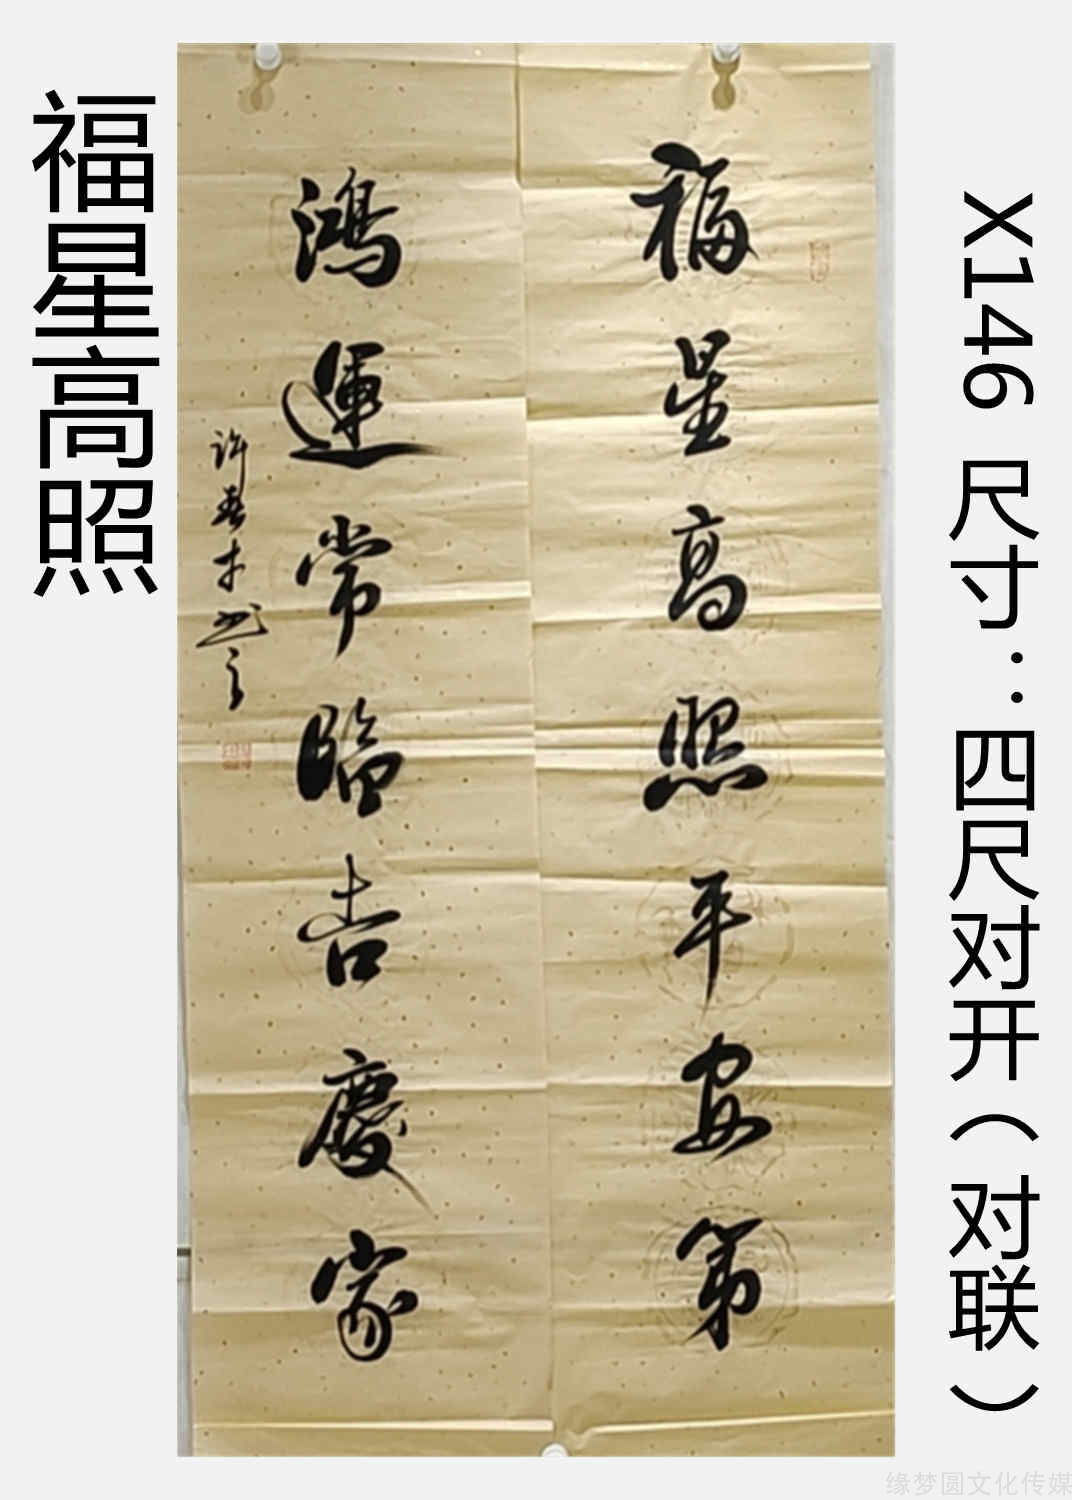 福星高照
福星高照平安第
鴻運常臨吉慶家
许春才书
X146 尺寸：四尺对开（对联）
缘梦圆文化传媒